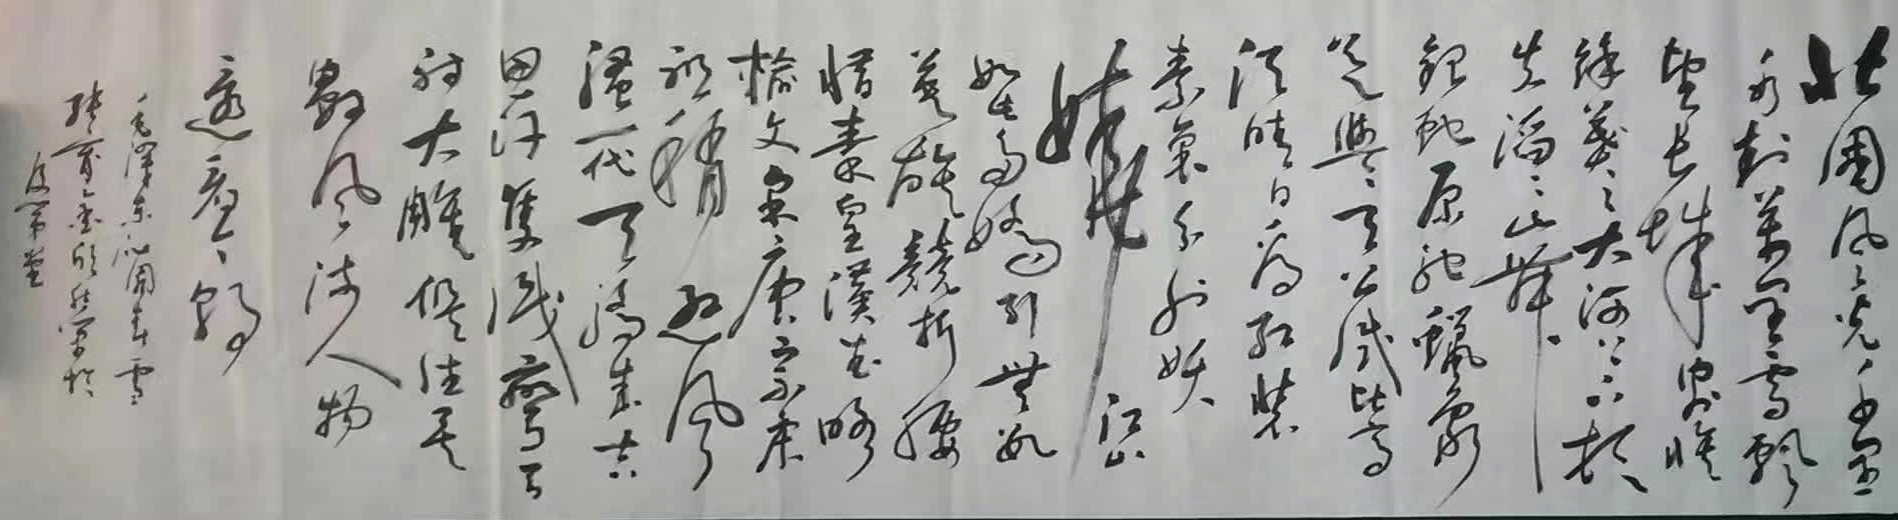 北國风光千里
冰封萬里雪飘
望长城内外惟
餘莽莽大河上下顿
失滔滔山舞
銀蛇原驰蠟象
欲與天公試比高
須晴日看红裝
素裹分外妖
娆江山
如此多娇引無数
英雄競折腰
惜秦皇漢武略
输文采唐宗宋
祖稍逊风
骚一代天骄成吉
思汗隻识彎弓
射大雕俱往矣
數风流人物
還看今朝
毛澤东沁園春雪